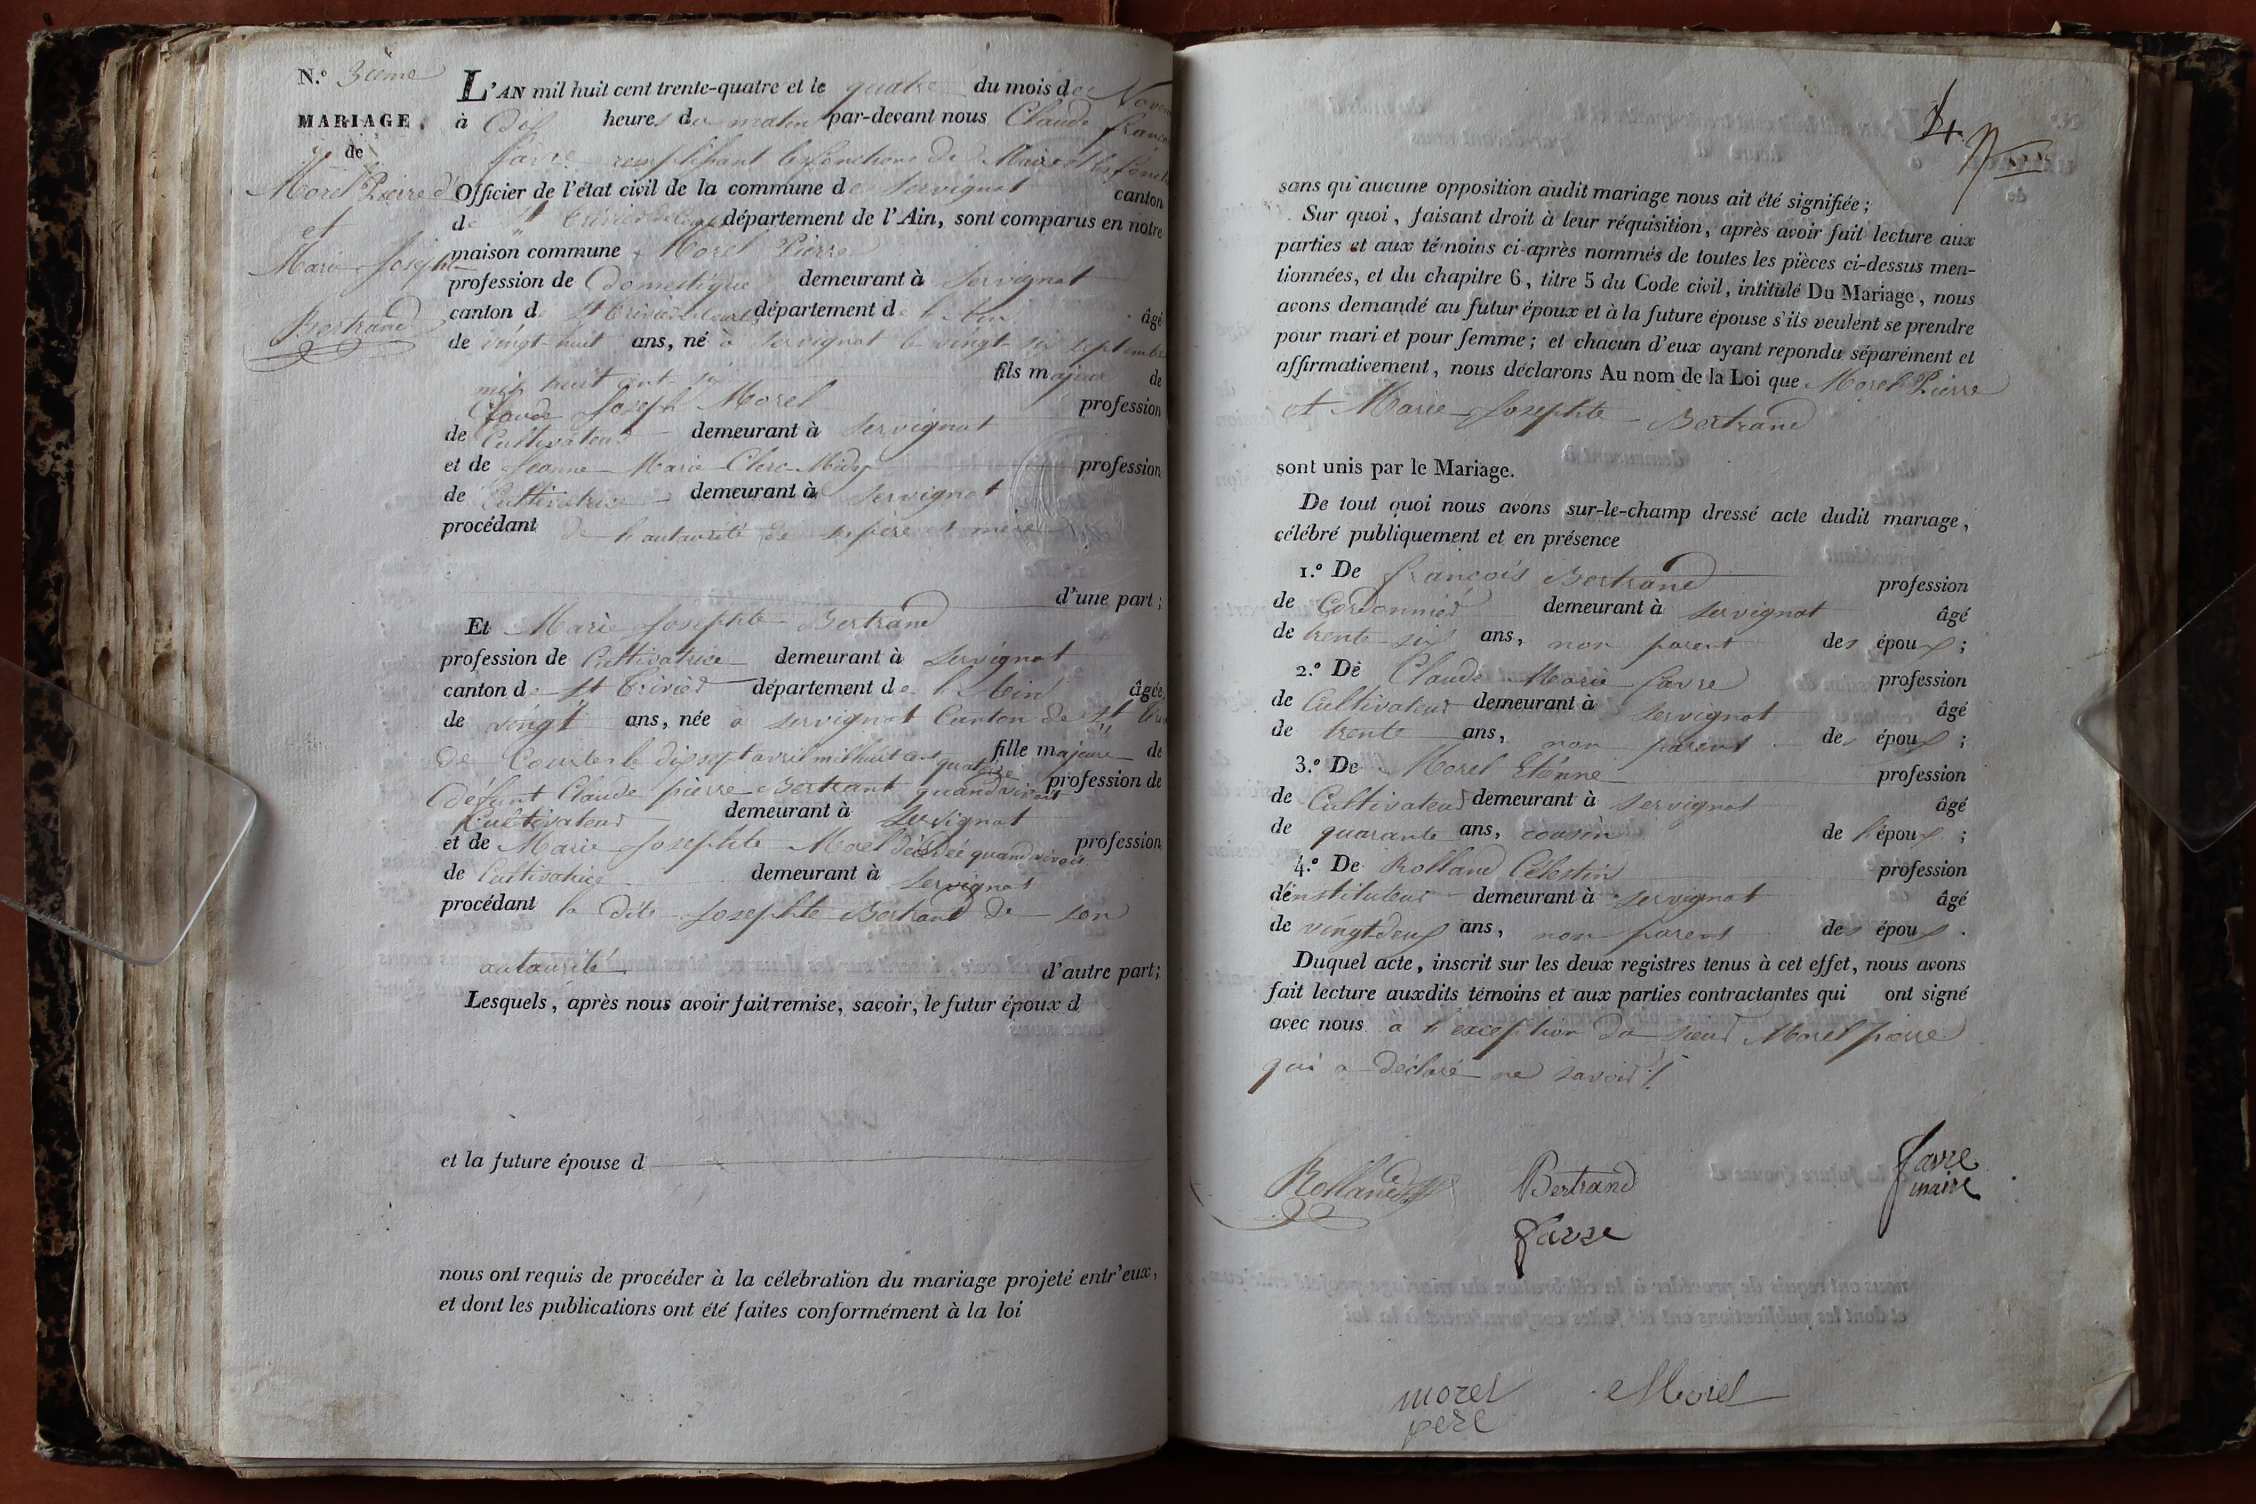 N.º 3ème
MARIAGE
de
Morel Pierre
et
Marie Josephte
Bertrand
L'AN mil huit cent trente-quatre et le quatre du mois de Novem
à dix heures du matin par-devant nous Claude françois
favre remplissant les fonctions de Maire et les fonct
Officier de l'état civil de la commune de Servignat canton
de St Trivier de Courtes département de l'Ain, sont comparus en notre
maison commune Morel Pierre
profession de Domestique demeurant à Servignat
canton de St Trivier de Courtes département de l'Ain âgé
de vingt huit ans, né à Servignat le vingt six septembre
mil huit cent six fils majeur de
Claude Joseph Morel profession
de Cultivateur demeurant à Servignat
et de Jeanne Marie Clerc Midy profession
de Cultivatrice demeurant à Servignat
procédant de l'autaurité de ses père et mère
d'une part ;
Et Marie Josephte Bertrand
profession de Cultivatrice demeurant à Servignat
canton de St Trivier département de l'Ain âgée
de vingt ans, née à Servignat Canton de St Trivi
de Courtes le dixsept avril mil huit cent quatorze fille majeure de
défunt Claude pierre Bertrant quand vivait profession de
Cultivateur demeurant à Servignat
et de Marie Josephte Morel décédée quand vivait profession
de Cultivatrice demeurant à Servignat
procédant la dite Josephte Bertrand de son
autaurité d'autre part;
Lesquels, après nous avoir fait remise, savoir, le futur époux d
et la future épouse d
nous ont requis de procéder à la célébration du mariage projeté entr'eux,
et dont les publications ont été faites conformément à la loi
4.
sans qu'aucune opposition audit mariage nous ait été signifiée ;
Sur quoi, faisant droit à leur réquisition, après avoir fait lecture aux
parties et aux témoins ci-après nommés de toutes les pièces ci-dessus men-
tionnées, et du chapitre 6, titre 5 du Code civil, intitulé Du Mariage, nous
avons demandé au futur époux et à la future épouse s'ils veulent se prendre
pour mari et pour femme ; et chacun d'eux ayant repondu séparément et
affirmativement, nous déclarons Au nom de la Loi que Morel Pierre
et Marie Josephte Bertrand
sont unis par le Mariage.
De tout quoi nous avons sur-le-champ dressé acte dudit mariage,
célébré publiquement et en présence
1.º De françois Bertrand profession
de Cordonnier demeurant à Servignat âgé
de trente six ans, non parent des époux ;
2.º De Claude Marie favre profession
de Cultivateur demeurant à Servignat âgé
de trente ans, non parent des époux ;
3.º De Morel Etienne profession
de Cultivateur demeurant à Servignat âgé
de quarante ans, cousin de l'époux ;
4.º De Rolland Célestin profession
d'énstituteur demeurant à Servignat âgé
de vingt deux ans, non parent des époux .
Duquel acte, inscrit sur les deux registres tenus à cet effet, nous avons
fait lecture auxdits témoins et aux parties contractantes qui ont signé
avec nous à l'exception du sieur Morel pierre
qui a déclaré ne savoir !
Rolland Bertrand favre
maire
favre
morel Morel
pere